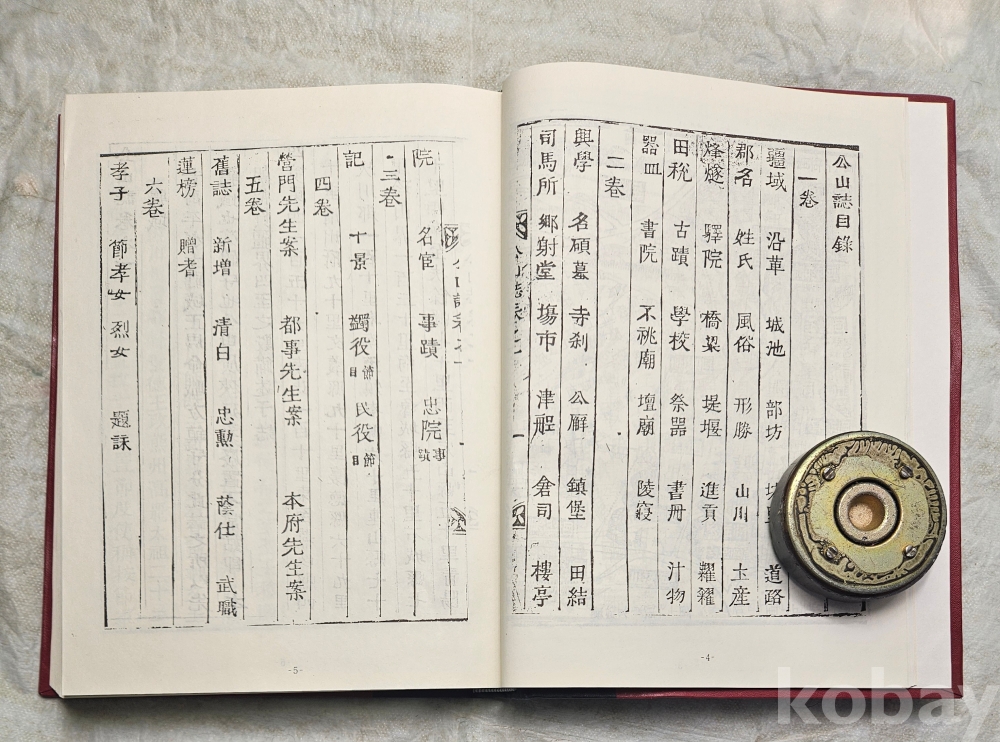 公山誌目錄
一卷
疆域 沿革 城池 部坊 道路
郡名 姓氏 風俗 形勝 山川 土産
烽燧 驛院 橋梁 堤堰 進貢 糶糴
田稅 古蹟 學校 祭器 書冊 汁物
器皿 書院 不祧廟 壇廟 陵寢
二卷
興學 名碩墓 寺刹 公廨 鎭堡 田結
司馬所 鄕射堂 塲市 津船 倉司 樓亭
-4-
院 名宦 事蹟 忠院事蹟
三卷
記 十景 蠲役節目 民役節目
四卷
營門先生案 都事先生案 本府先生案
五卷
舊誌 新增 清白 忠勳 蔭仕 武職
蓮榜 贈耆
六卷
孝子 節孝女 烈女 題詠
-5-
kobay